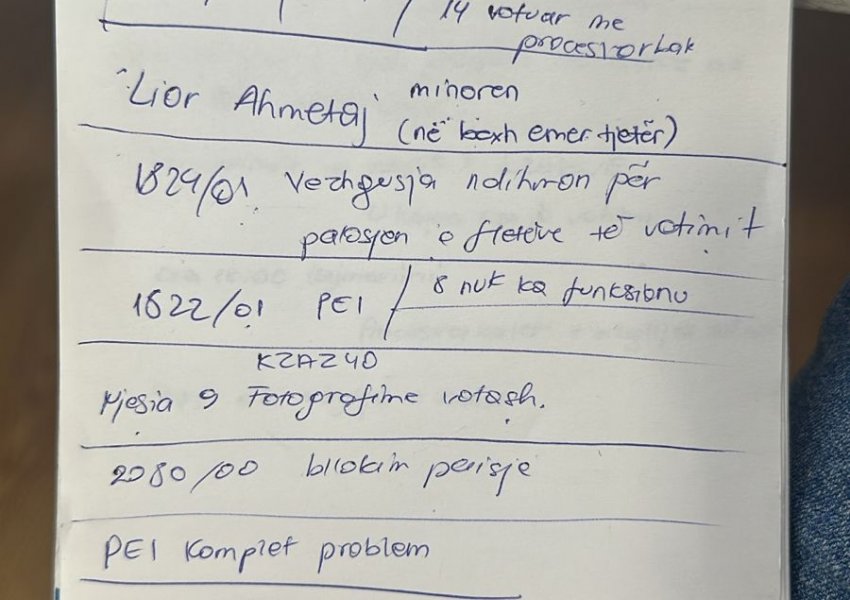 14 votuar me
procesvorbak
Lior Ahmetaj minoren
(në boxh emer tjetër)
1824/01 Vezhgusja ndihmon për
palosjen e fletëve të votimit
1822/01 PEI 8 nuk ka funksionu
KZAZ 40
Njesia 9 Fotografime votash.
2080/00 bllokim paisje
PEI Komplet problem